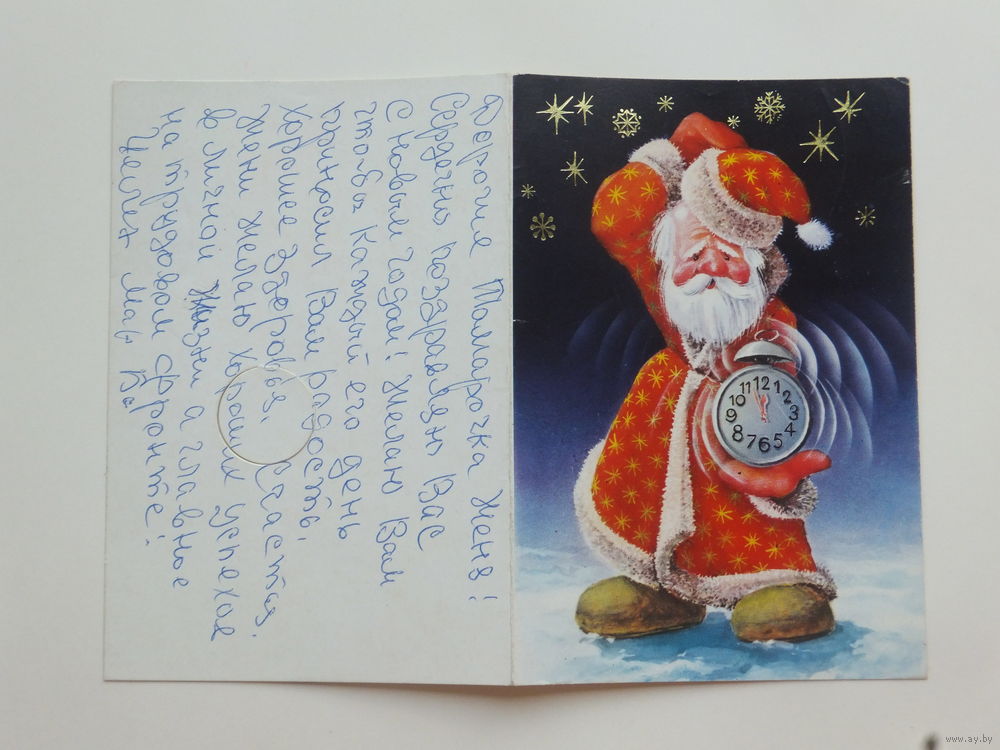 Дорогие Тамарочка Женя!
Сердечно поздравляю Вас
с новым годом! Желаю Вам
чтобы каждый его день
приносил Вам радость,
хорошее здоровье, счастья.
Жени желаю хороших успехов
в личной жизни а главное
на трудовом фронте!
Целую
12
1
2
3
4
5
6
7
8
9
10
11
www.ay.by